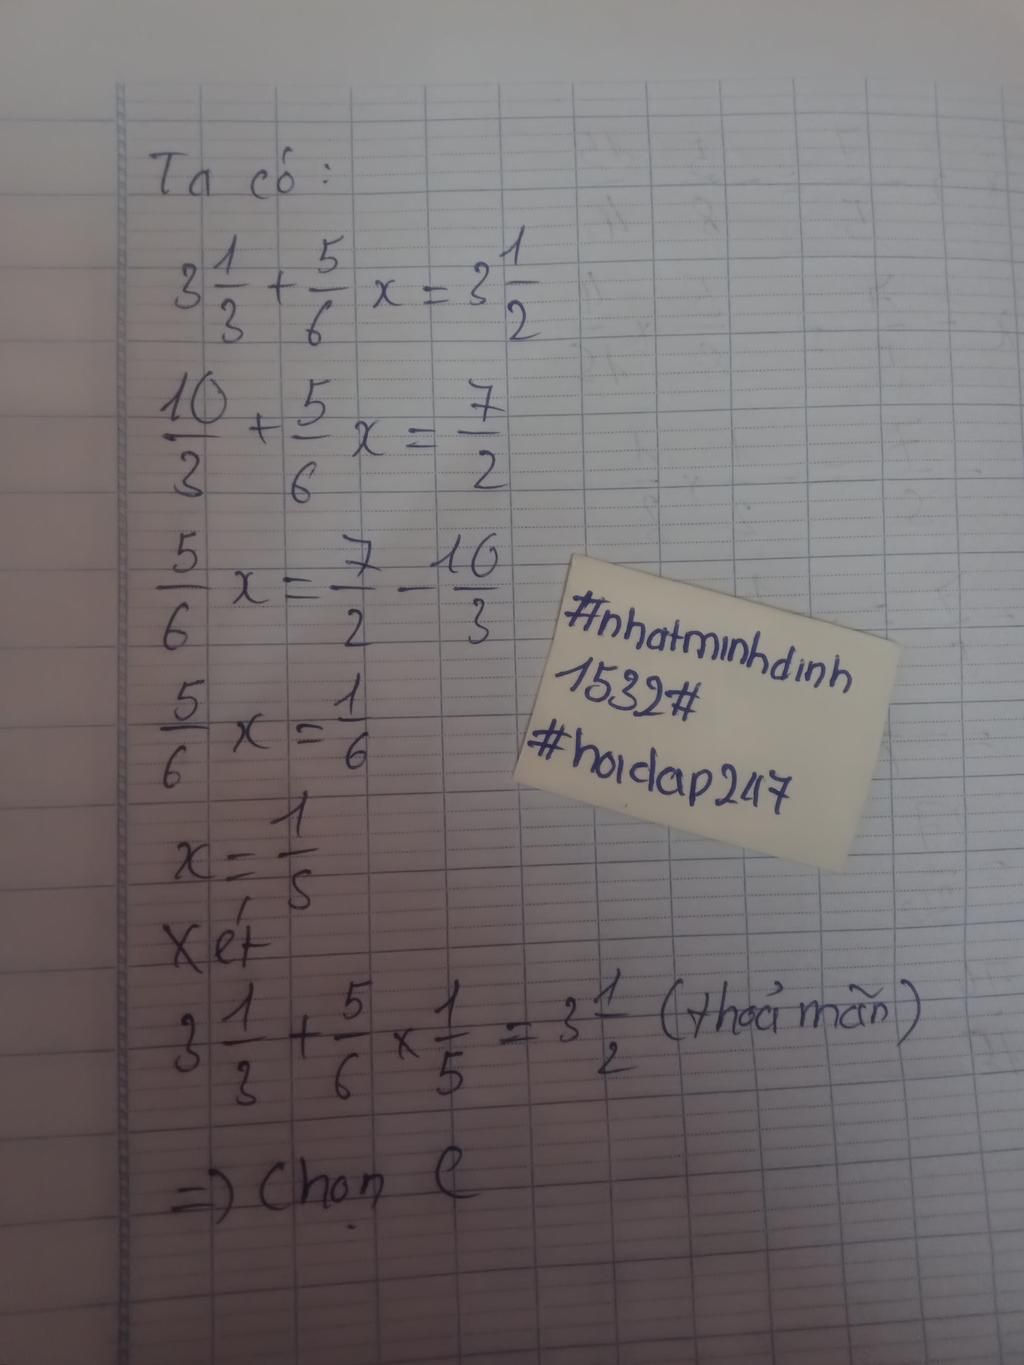 Ta có:
3 1/3 + 5/6 x = 3 1/2
10/3 + 5/6 x = 7/2
5/6 x = 7/2 - 10/3
5/6 x = 1/6
x = 1/5
Xét
3 1/3 + 5/6 x 1/5 = 3 1/2 (thoả mãn)
=) Chọn C
#nhatminhdinh
1532#
#hoidap247